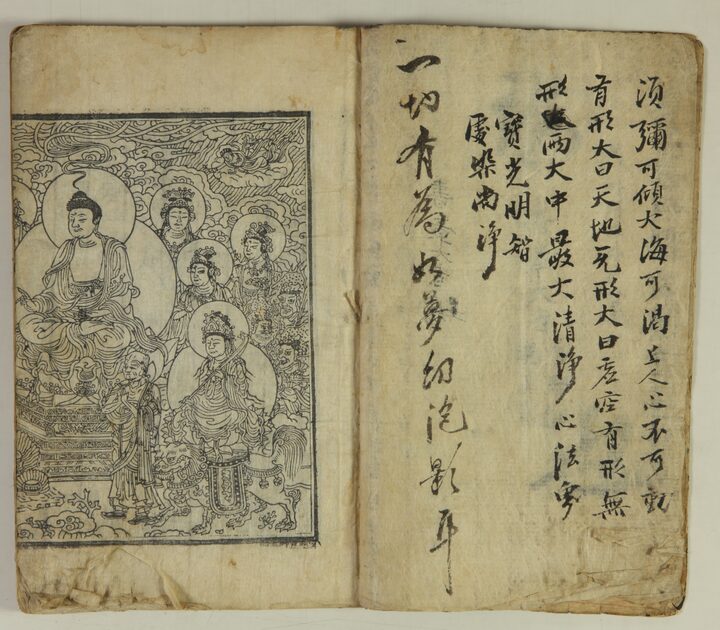 須彌可傾大海可渴上人心不可動
有形大曰天地无形大曰虛空有形無
形兩大中最大清淨心法
寶光明智
處染尚淨
一切有為如夢幻泡影耳